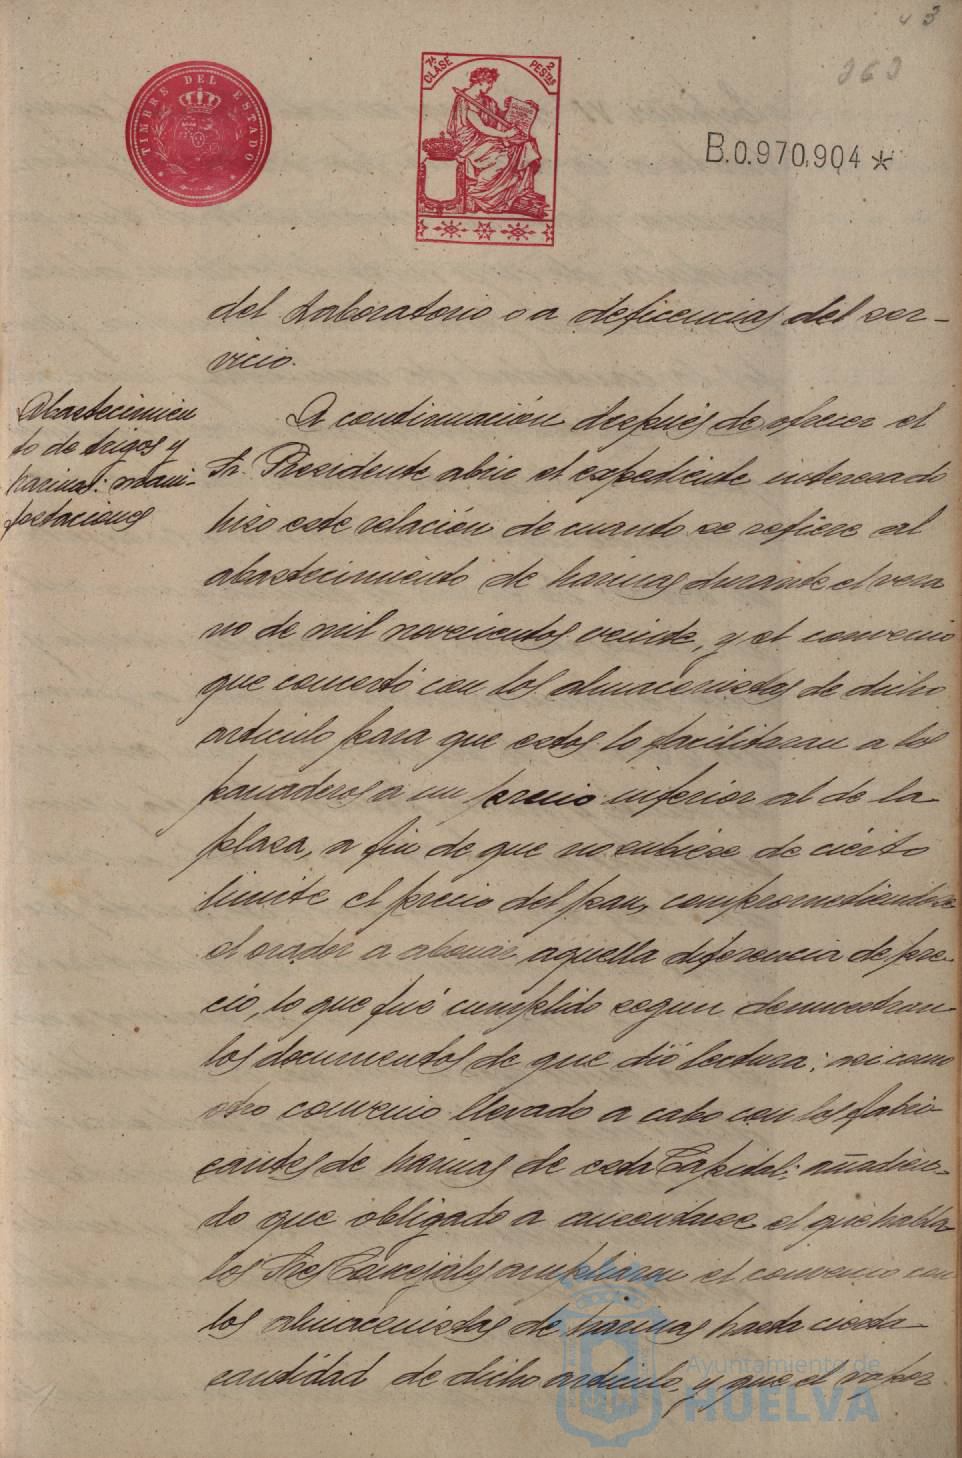 43
363
TIMBRE DEL ESTADO
7ª CLASE 2 PESTAS
B.0.970.904 *
del Laboratorio o a deficencias del ser-
vicio.
Abastecimien
to de trigos y
harinas: mani-
festaciones
A continuación después de ofrecer el
Sr. Presidente abrir el expediente interesado
hizo este relación de cuanto se refiere al
abastecimiento de harinas durante el vera
no de mil novecientos veinte, y el convenio
que concertó con los almacenistas de dicho
artículo para que estos lo facilitaran a los
panaderos a un precio inferior al de la
plaza, a fin de que no subiese de cierto
límite el precio del pan, comprometiendose
el orador a abonar aquella diferencia de pre-
cio, lo que fué cumplido segun demuestran
los documentos de que dió lectura; asi como
otro convenio llevado a cabo con los fabri-
cantes de harinas de esta Capital; añadien-
do que obligado a ausentarse el que habla
los Sres Concejales ampliaron el convenio con
los almacenistas de harinas hasta cierta
cantidad de dicho artículo, y que el vapor
Ayuntamiento de
HUELVA